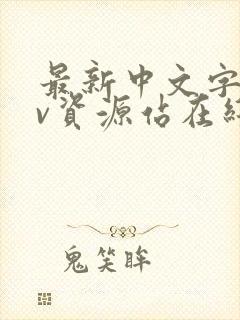 最新中文字
v資源佔在
鬼笑眸